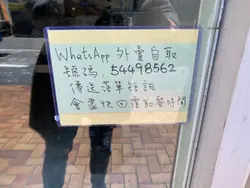 WhatsApp 外賣自取
號碼 54498562
傳送落單短訊
會盡快回覆取餐時間